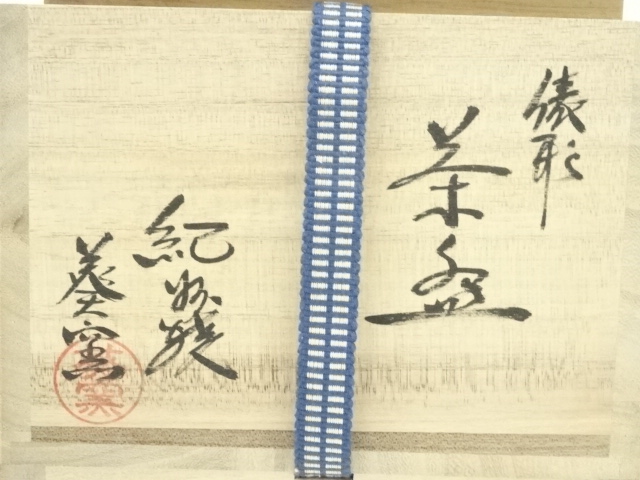 俵形
茶盌
紀州焼
葵窯